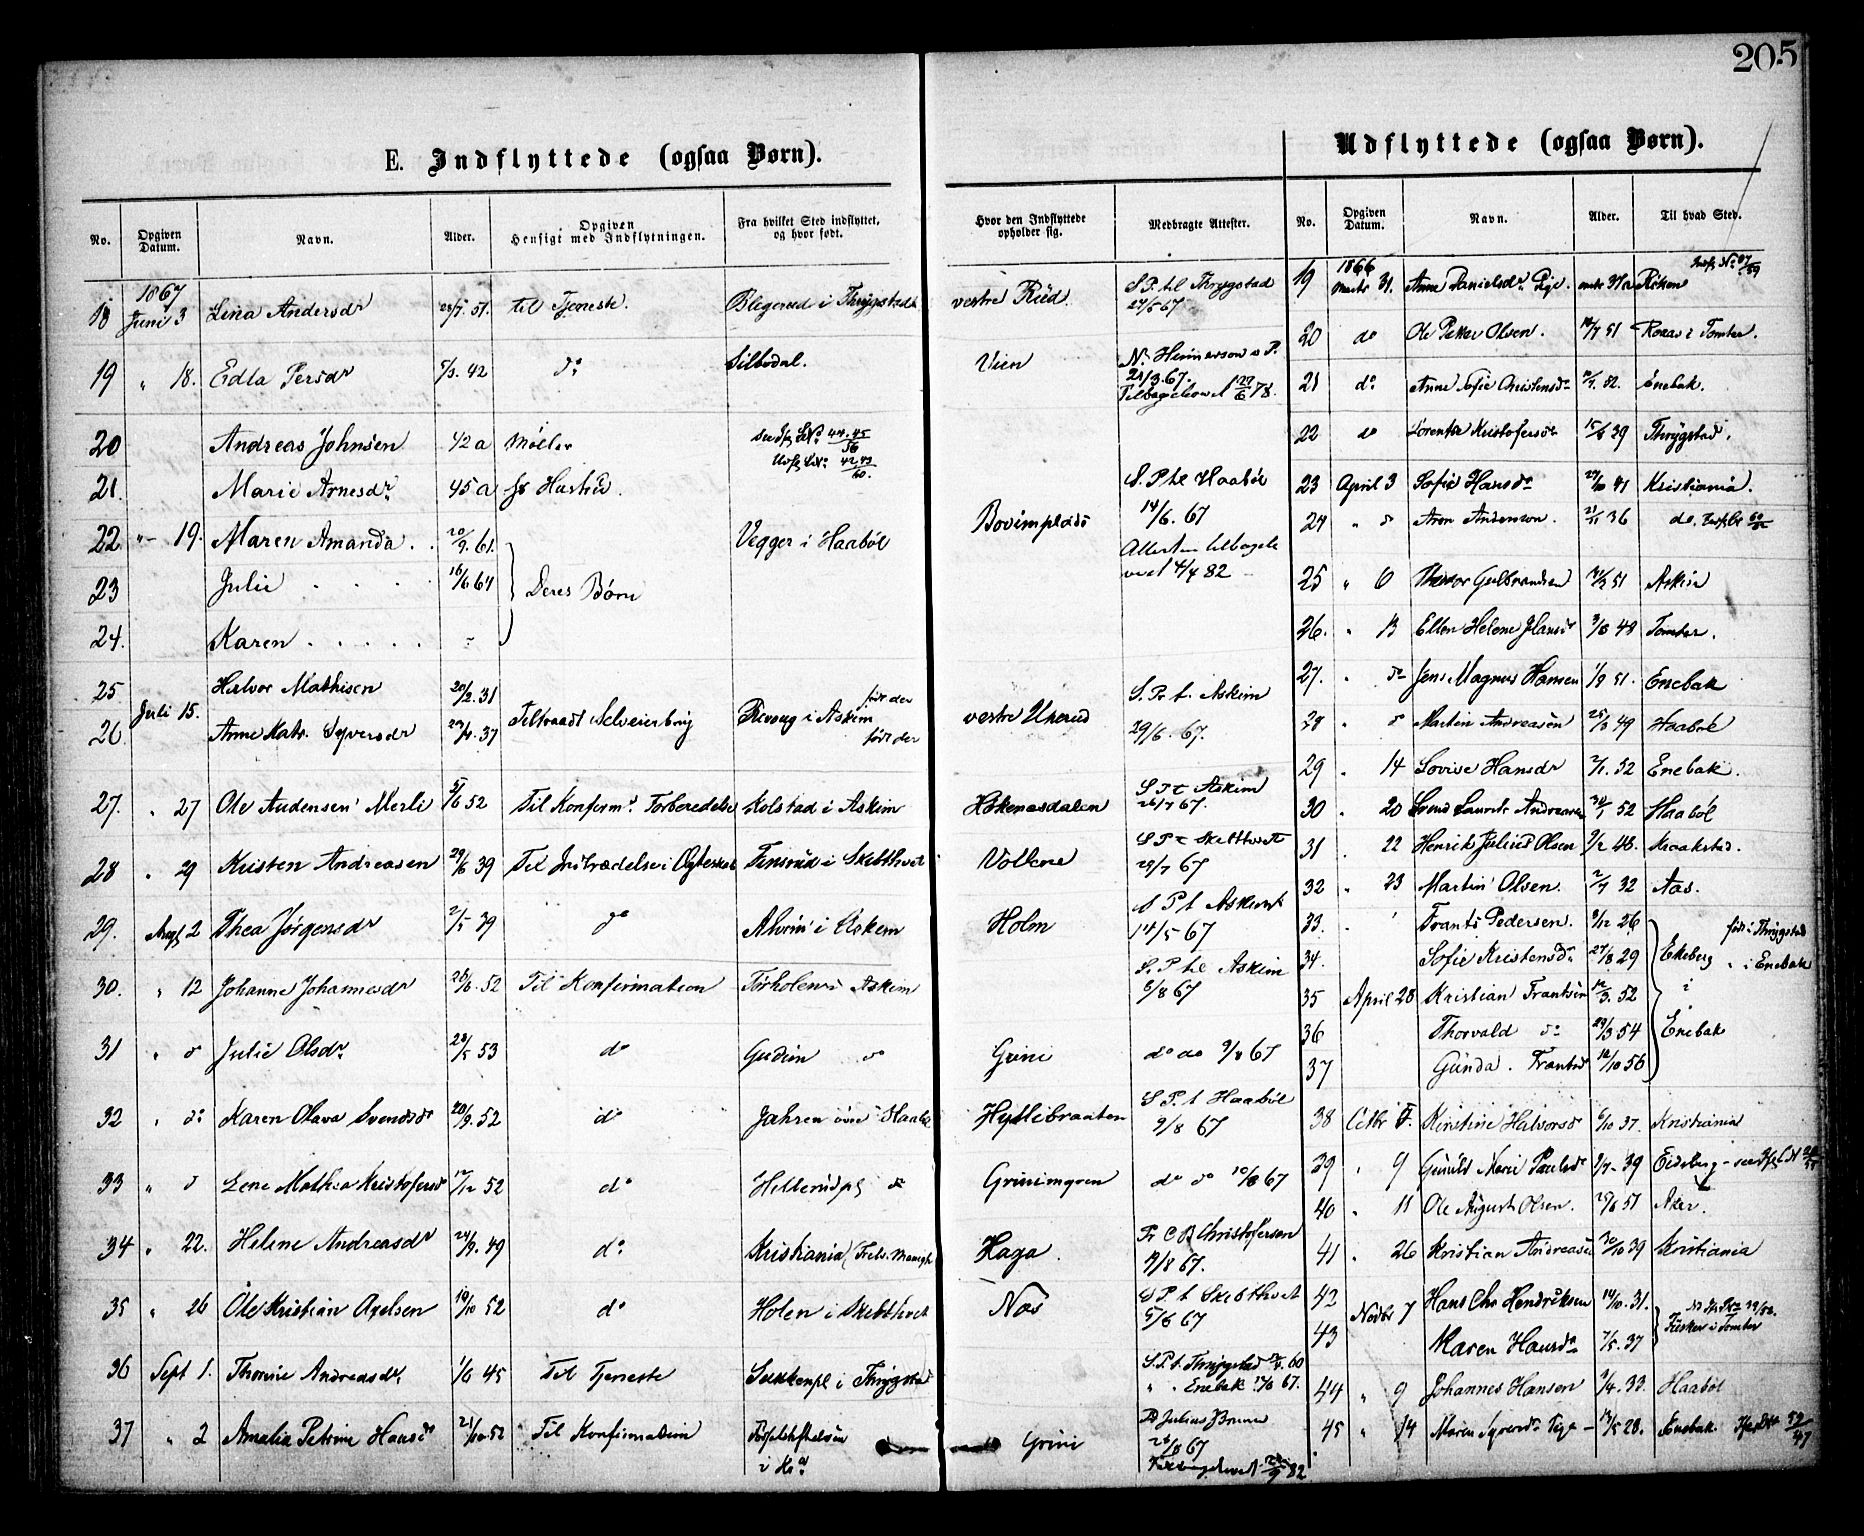 205
E. Indflyttede (ogsaa Børn).
Udflyttede (ogsaa Børn).
No. Opgiven Datum. Navn. Alder. Opgiven Hensigt med Indflytningen. Fra hvilket Sted indflyttet, og hvor født. Hvor den Indflyttede opholder sig. Medbragte Attester.
No. Opgiven Datum. Navn. Alder. Til hvad Sted.
1867
18 Juni 3 Lina Andersdr til Tjeneste. i Thrygstad vestre Rüd. S.P. til Thrygstad 27/5 67
19 " 18. Edla Persdr 5/3. 42 do Silbodal. Vien 21/3. 67.
20 Andreas Johnsen 42 a Møller
21. Marie Arnesdr 45 a Hustru. S.P. til Haabøl
22 "- 19. Maren Amanda . . 20/9. 61. Vegger i Haabøl 14/6. 67
23 Julie . . . . 16/6 64 Deres Børn
24. Karen . . . . . Attesten tilbage 4/4 82
25 Juli 15. Halvor Mathisen 20/2. 31 Tiltraadt Selveierbrug i Askim født der vestre S. Pr. t. Askim
26 Anne Kath. Syversdr 37 født der 29/6. 67.
27. " 27 Ole Audensen Merli 5/6 52 Til Konform. Forberedelse Kolstad i Askim S P t Askim 26/7 67.
28 " 29 Kristen Andreasen 29/6 39 Til Indtrædelse i Ægteskab i Skibthvet Vollene S P t Skibthvet 28/7 67
29. Augs 2 Thea Jørgensdr 2/5 39 do i Askim Holm S P t Askim 14/5 67
30. " 12 Johanne Johannesdr 28/6. 52 Til Konfirmation i Askim S. P til Askim 6/8 67
31 " d Julie Olsdr 28/5 53 do Gudim do Grini do do 9/8 67
32 " do Karen Olava Svendsdr 20/9. 52 do Jahren øvre Haabøl Hyttebraaten S P. t Haabøl 9/8 67
33 " d Lene Mathea Kristofersdr 17/12 52 do Hellerudpl do do do 10/8 67
34 " 22. Helene Andreasdr 24/9. 49 do Kristiania Haga. Pr C B Christofersen 9/8 67.
35 " 26 Ole Kristian Axelsen 19/10 52 do Holen i Skibthvet Nos S P t Skibthvet 5/6 67
36 Sept 1. Thorine Andreasdr 1/6 45 Til Tjeneste i Thrygstad S.P. t. Thrygstad 60 " " Enebak 67.
37 " 2 Amalia Petrine Hansdr 21/10 52 Til Konfirmation Fødselsstiftelsen i Kra Grini Pr Julius Bruun 26/8 67 82
1866
19 Marts 31. Anne Danielsdr Pige.
20 do Ole Petter Olsen. 51 i Tomter.
21 do Anne Sofie Enebak.
22 do Lorentse Kristofersdr 15/8 39 Thrygstad.
23 April 3 Sofie Hansdr 41 Kristiania.
24 " d Aron Andersson. 21/11 36 do.
25 " 6 Gulbrandsen 51 Askim
26. " 13 Ellen Helene Hansdr 48 Tomter.
27. " do Jens Magnus Hansen 51. Enebak
28 " d Martin Andreasen 25/3 49 Haabøl
29 . 14 Lovise Hansdr 52 Enebak.
30 . 20 Laurits Andreasen 52 Haabøl
31 . 22 Henrik Julius Olsen 48. Kraakstad.
32 " 23 Martin Olsen. 2/7 32 Aas.
33. Frants Pedersen. 9/12 26 Ekeberg født i Thrygstad
34. Sofie Kristensdr 27/8. 29 " i Enebak
35 April 28 Kristian Frantsen 12/3. 52 i
36 Thorvald do 29/3 54 Enebak
37 Gunda. Frantsdr 12/10 56
38 Octbr Kirstine Halvorsdr 6/10 37. Kristiania
39 " 9 Gunild Marie Paulsdr 39 Eidsberg
40 . 11 Ole August Olsen. 51 Aker.
41 . 26 Kristian Andreasen 30/10 39 Kristiania
42 Novbr 7 Hans Chr Hendriksen 14/10. 31.
43 Maren Hansdr 7/5. 37 i Tomter
44 " 9 Johannes Hansen 9/4. 33. Haabøl
45 " 14 Maren Syversdr Pige - 28. Enebak.